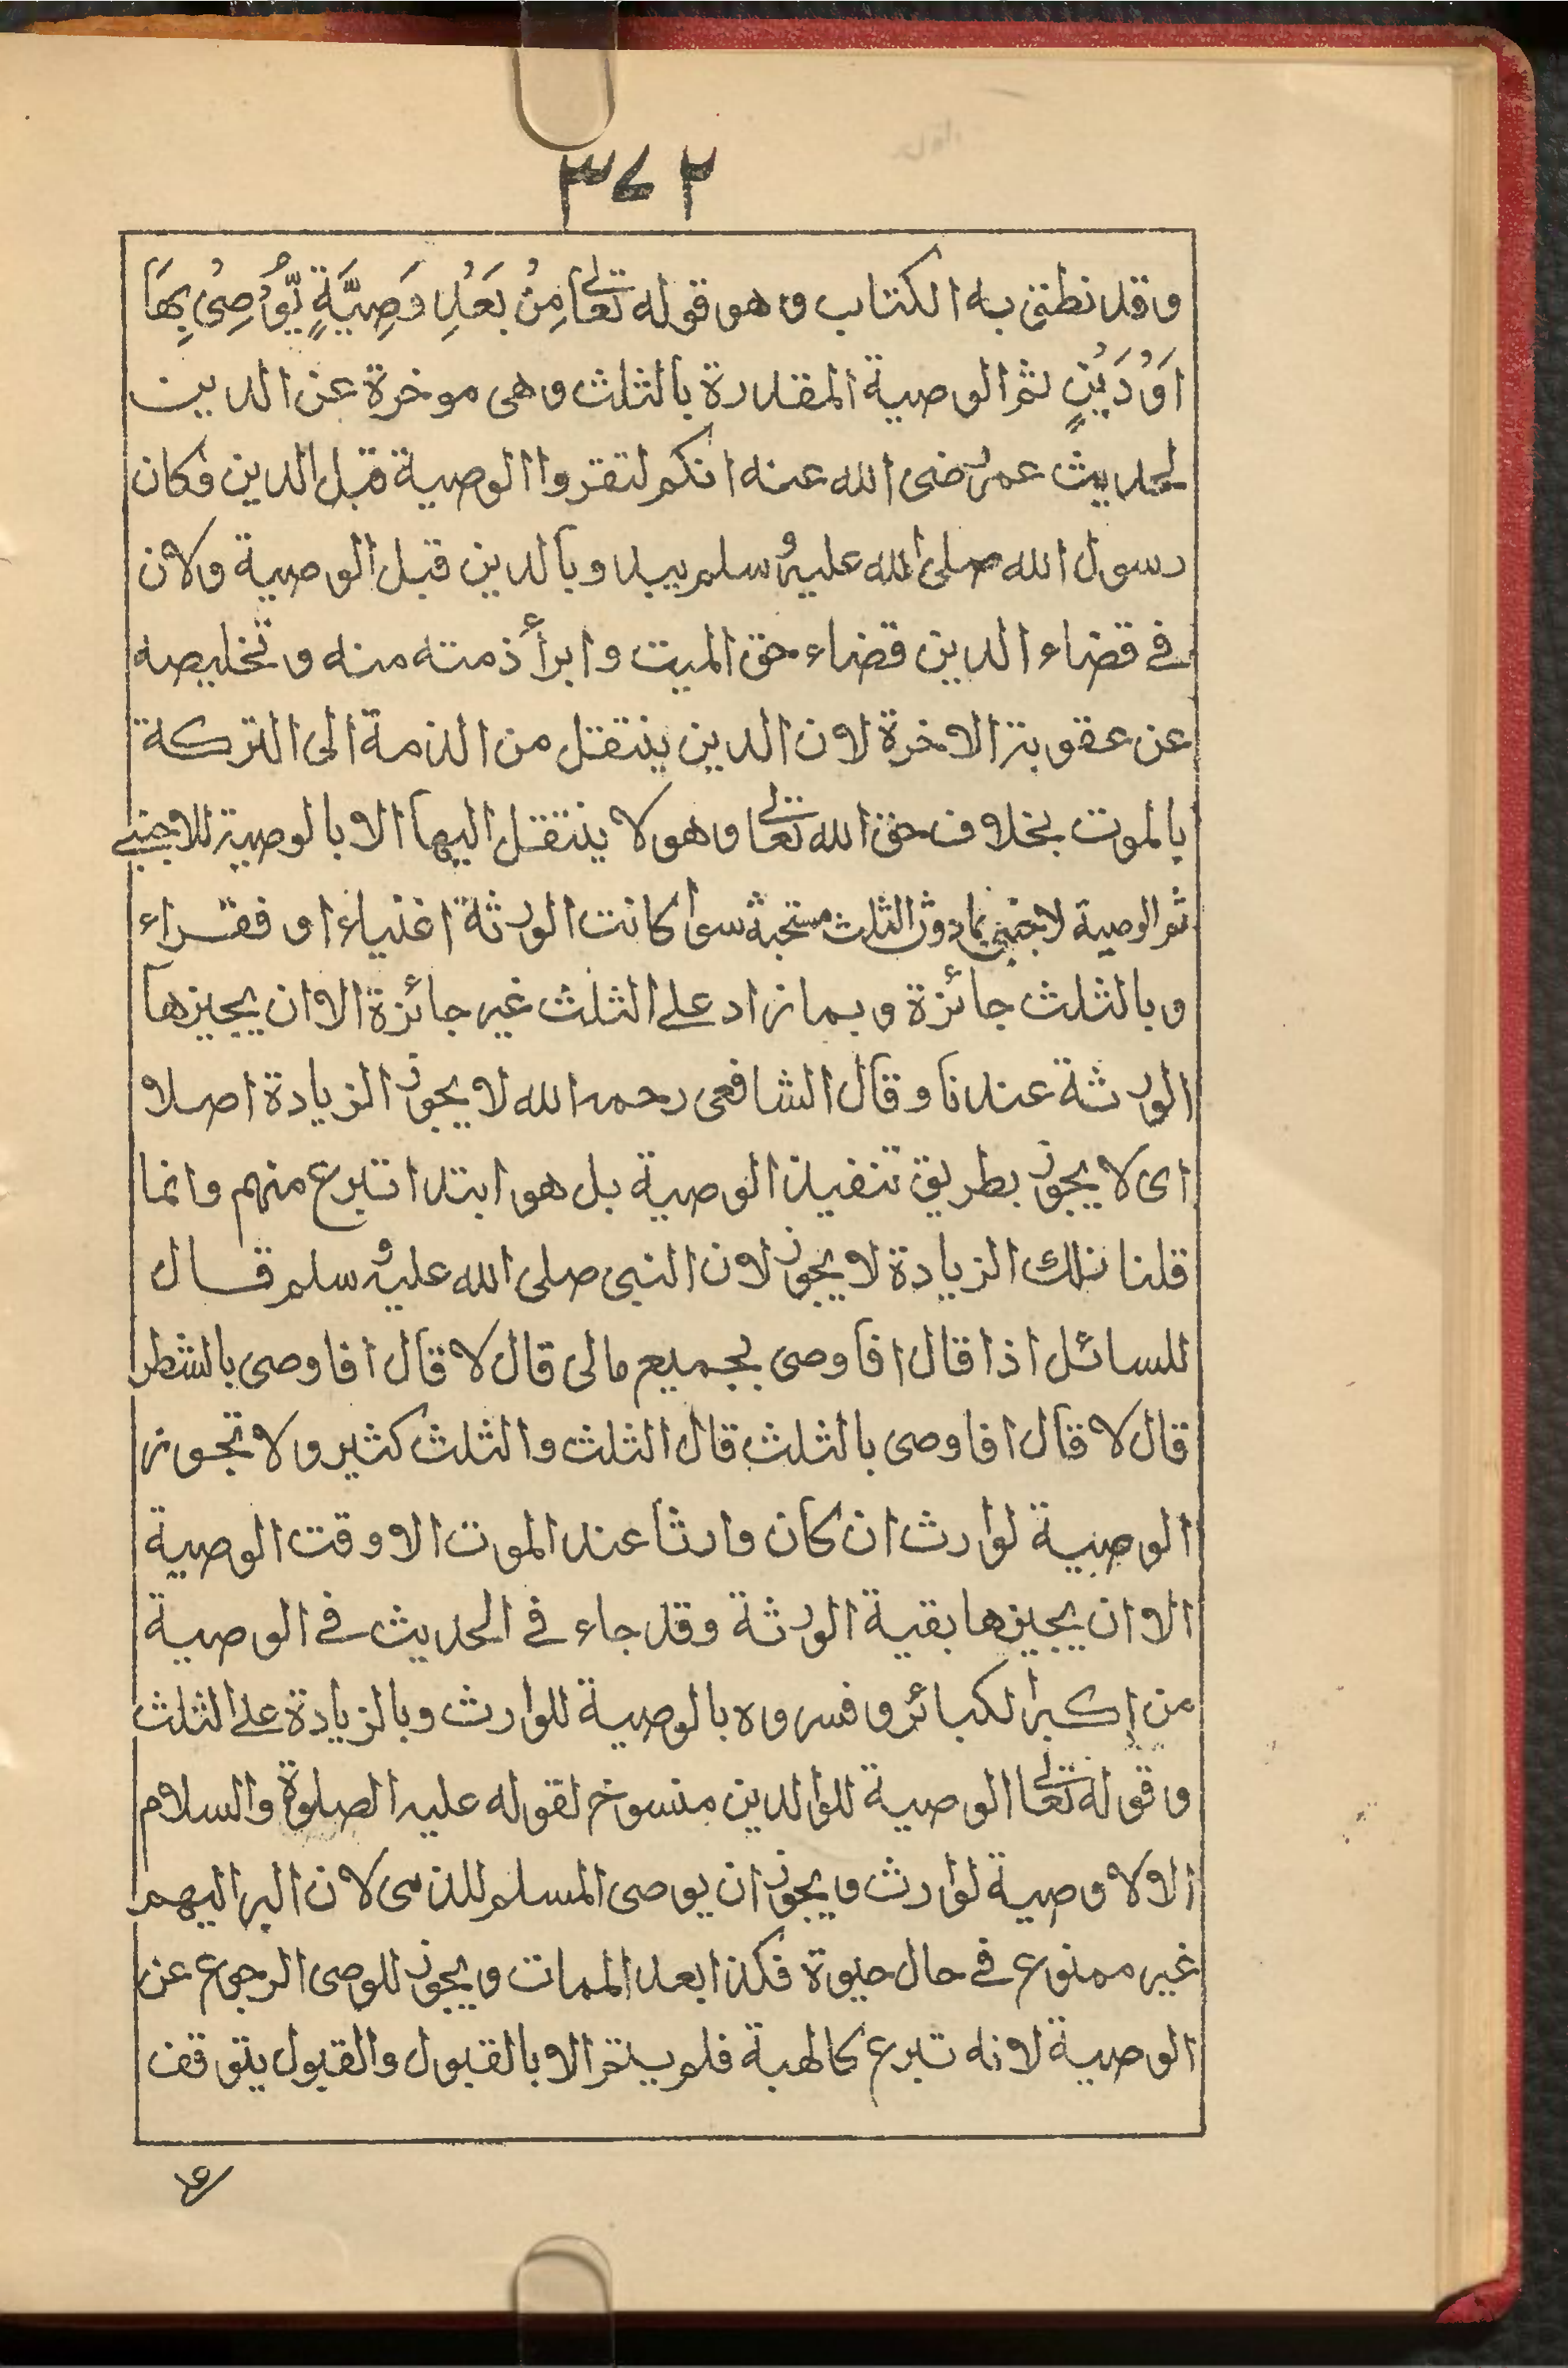 ٣٧٢
وقد نطق به الكتاب وهو قوله تعالى مِنْ بَعْدِ وَصِيَّةٍ يُّوْصِىْ بِهَا
اَوْ دَيْنٍ ثم الوصية المقدرة بالثلث وهى موخرة عن الدين
لحديث عمر رضى الله عنه انكم لتقروا الوصية قبل الدين فكان
رسول الله صلى الله عليه وسلم يبدو بالدين قبل الوصية ولان
فى قضاء الدين قضاء حق الميت وابرأ ذمته منه وتخليصه
عن عقوبة الاخرة لان الدين ينتقل من الذمة الى التركة
بالموت بخلاف حق الله تعالى وهو لا ينتقل اليها الا بالوصية للاجنبى
ثم الوصية لاجنبى بما دون الثلث مستحبة سواء كانت الورثة اغنياء او فقراء
وبالثلث جائزة وبما زاد على الثلث غير جائزة الا ان يجيزها
الورثة عندنا وقال الشافعى رحمه الله لا يجوز الزيادة اصلا
اى لا يجوز بطريق تنفيذ الوصية بل هو ابتدا تبرع منهم وانما
قلنا تلك الزيادة لا يجوز لان النبى صلى الله عليه وسلم قال
للسائل اذا قال افاوصى بجميع مالى قال لا قال افاوصى بالشطر
قال لا قال افاوصى بالثلث قال الثلث والثلث كثير ولا تجوز
الوصية لوارث ان كان وارثا عند الموت الا وقت الوصية
الا ان يجيزها بقية الورثة وقد جاء فى الحديث فى الوصية
من اكبر الكبائر وفسروه بالوصية للوارث وبالزيادة على الثلث
وقوله تعالى الوصية للوالدين منسوخ لقوله عليه الصلوة والسلام
الا لا وصية لوارث ويجوز ان يوصى المسلم للذمى لان البر اليهم
غير ممنوع فى حال حيوة فكذا بعد الممات ويجوز للوصى الرجوع عن
الوصية لانه تبرع كالهبة فلم يتم الا بالقبول والقبول يتوقف